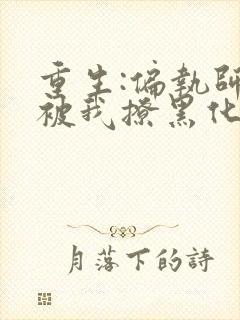 重生:偏執師
被我撩黑化
月落下的詩